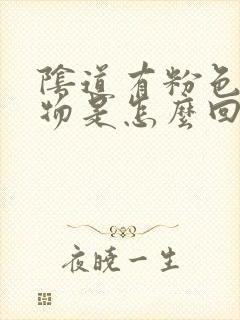 陰道有粉色
物是怎麼回
夜曉一生